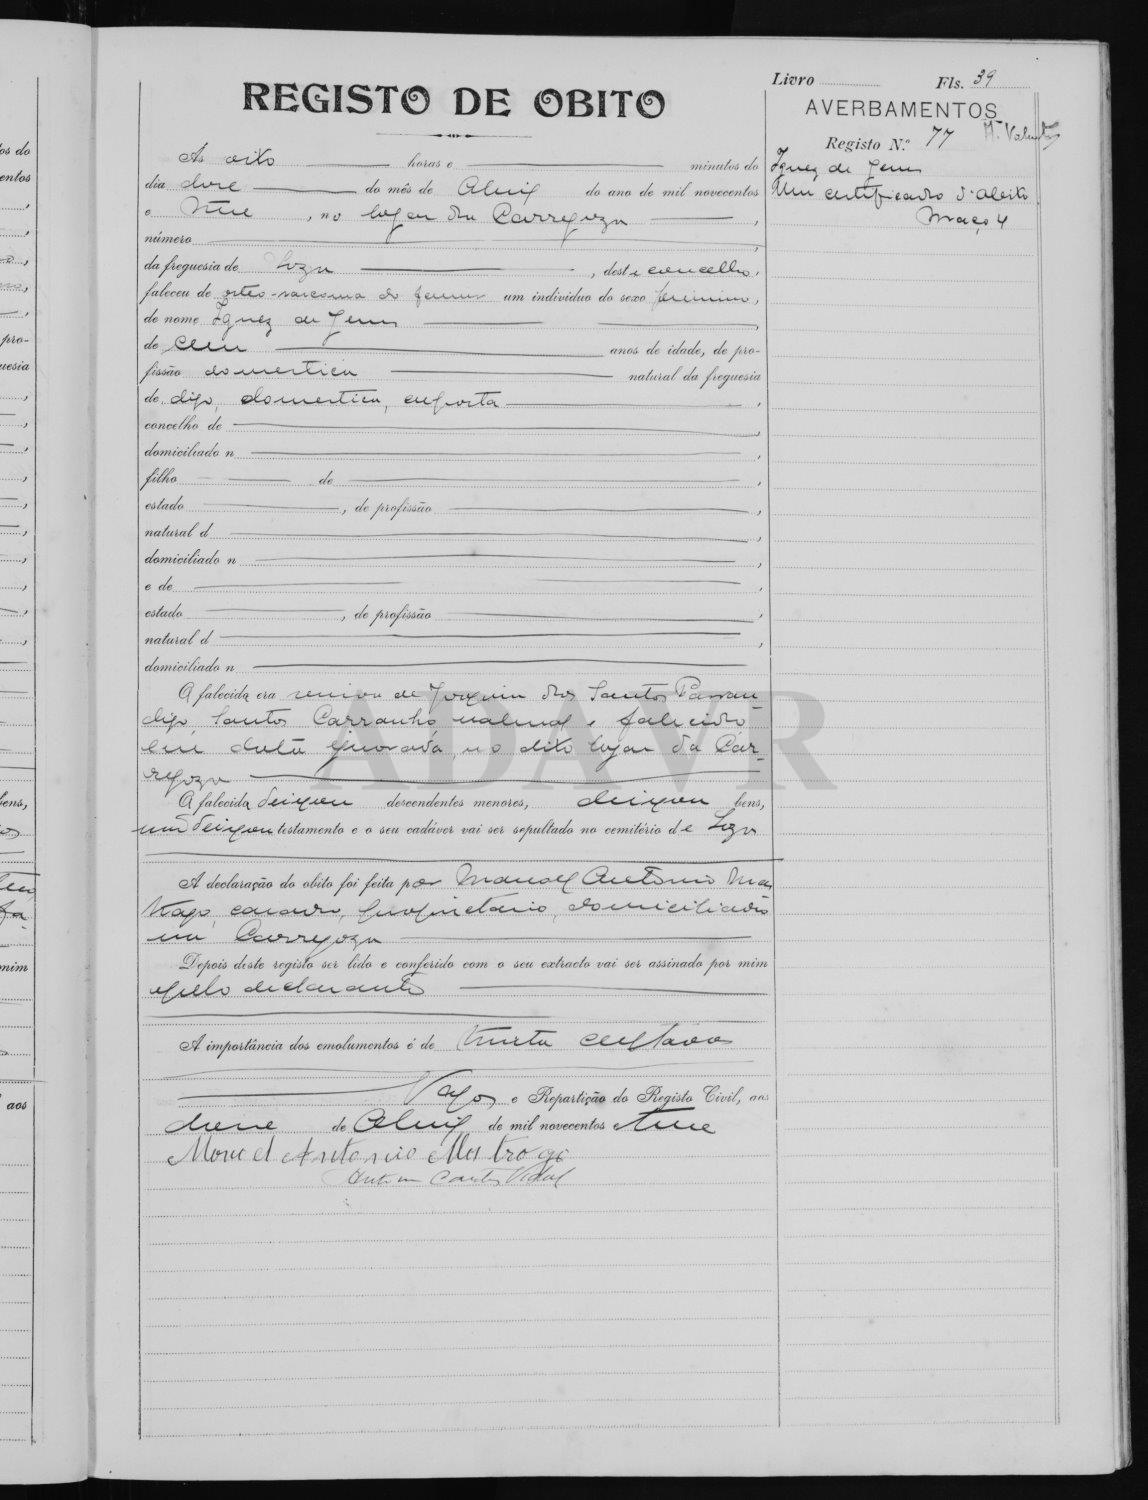 Livro Fls. 39
REGISTO DE OBITO
AVERBAMENTOS
Registo N.º 77
Ignez de Jesus
Um certificado d'obito
Maço 4
Ás oito horas e minutos do
dia doze do mês de Abril do ano de mil novecentos
e vinte, no logar da Carregoza,
número,
da freguesia de Soza, deste concelho,
faleceu de osteo-sarcoma do femur um individuo do sexo feminino,
de nome Ignez de Jesus,
de cem anos de idade, de pro-
fissão domestica natural da freguesia
de digo, domestica, exposta,
concelho de,
domiciliado n,
filho de,
estado, de profissão,
natural d,
domiciliado n,
e de,
estado, de profissão,
natural d,
domiciliado n
A falecida era viuva de Joaquim dos Santos
digo, Santos Carrancho, natural e falecido
em data ignorada, no dito logar da Car-
regoza
A falecida deixou descendentes menores, deixou bens,
não deixou testamento e o seu cadáver vai ser sepultado no cemitério de Soza
A declaração do obito foi feita por Manoel Antonio Mas
trago, casado, proprietario, domiciliado
na Carregoza
Depois deste registo ser lido e conferido com o seu extracto vai ser assinado por mim
e pelo declarante
A importância dos emolumentos é de trinta centavos
Vagos e Repartição do Registo Civil, aos
doze de Abril de mil novecentos e vinte
Manoel Antonio Mastrago
ADAVR